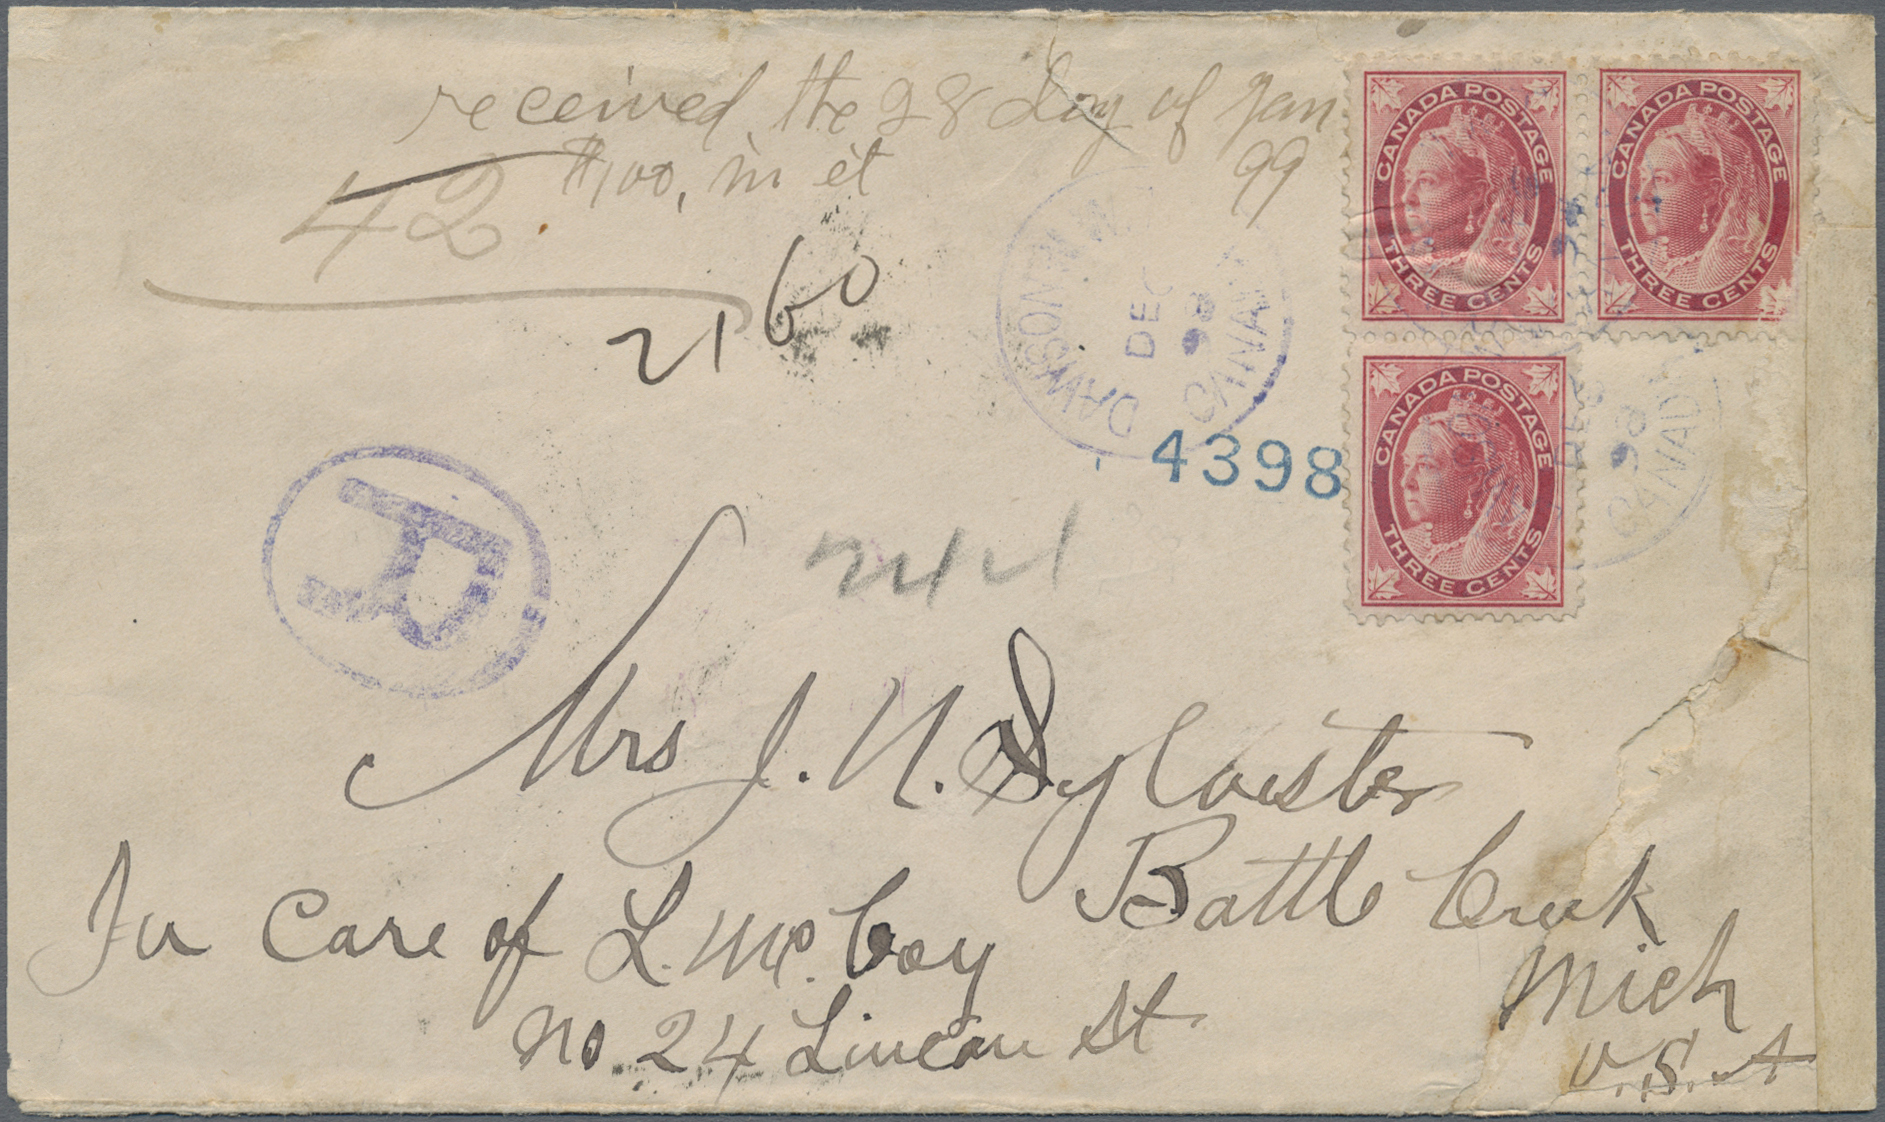 received the 28 day of Jan
99
$100, in it
42
2160
CANADA POSTAGE
THREE CENTS
CANADA POSTAGE
THREE CENTS
CANADA POSTAGE
THREE CENTS
DAWSON
DEC
98
CANADA
98
CANADA
4398
R
Mrs J. N. Sylvester
Battle Creek
Mich
U.S.A
In Care of L. Mc. Coy
No 24 Lincon St